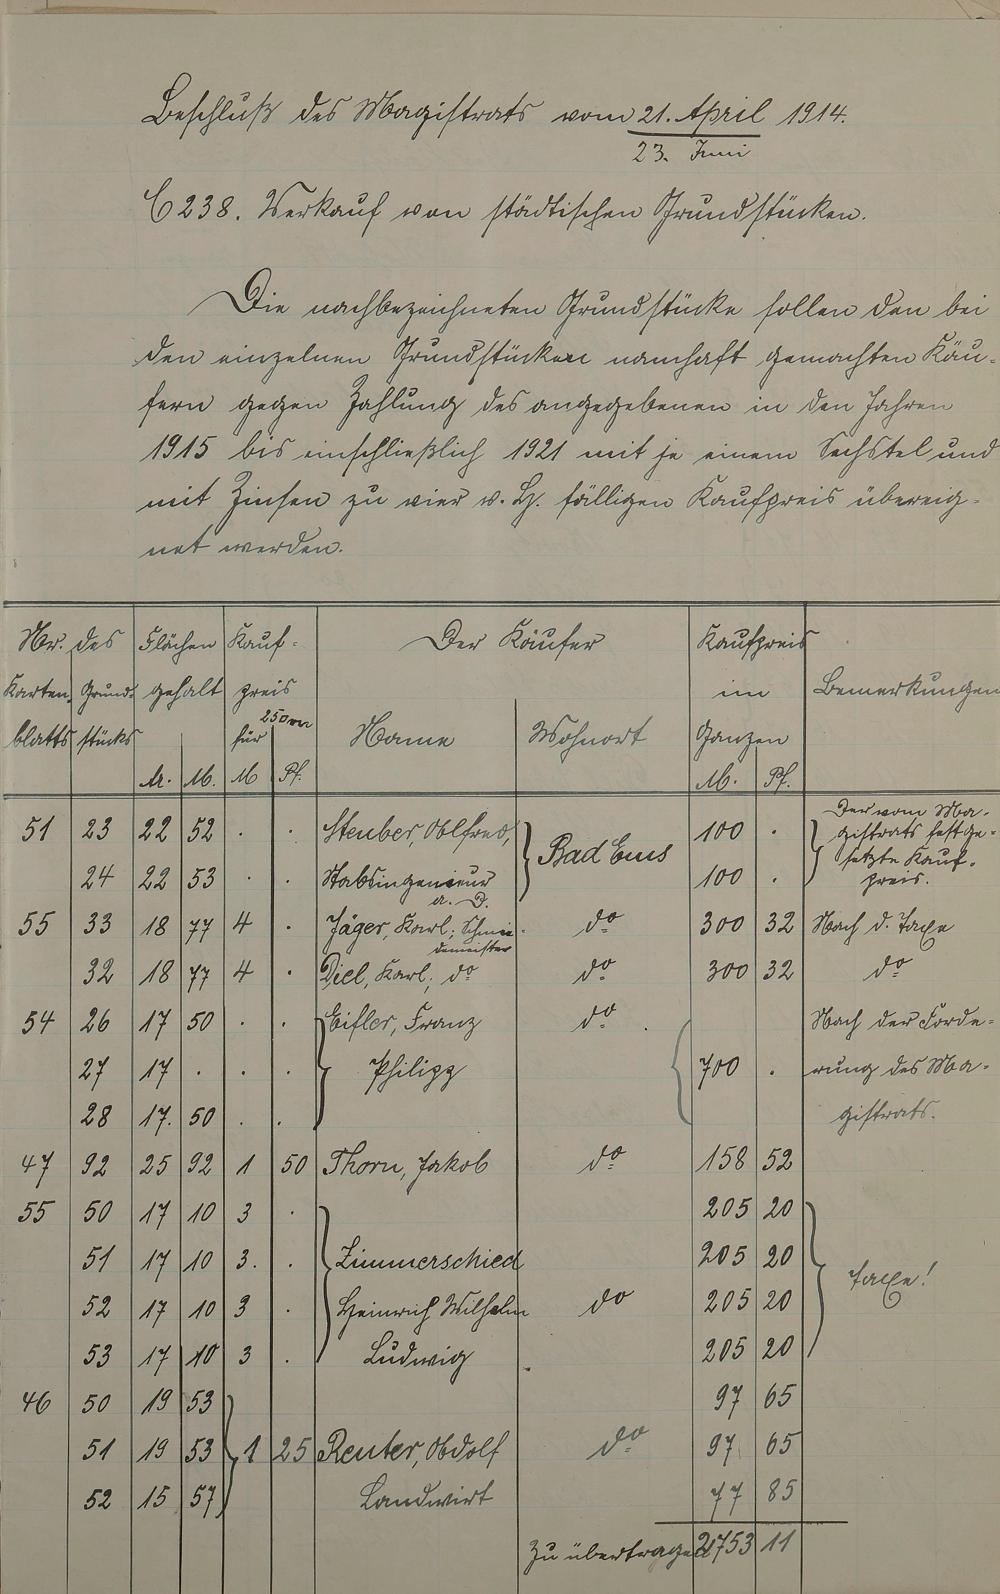 Beschluß des Magistrats vom 21. April 1914.
23. Juni
C 238. Verkauf von städtischen Grundstücken.
Die nachbezeichneten Grundstücke sollen den bei
den einzelnen Grundstücken namhaft gemachten Käu-
fern gegen Zahlung des angegebenen in den Jahren
1915 bis einschließlich 1921 mit je einem Sechstel und
mit Zinsen zu vier v. H. fälligen Kaufpreis übereig-
net werden.
Nr. des Flächen Kauf- Der Käufer Kaufpreis
Karten- Grund- gehalt preis im Bemerkungen
blatts stücks für 250 Name Wohnort Ganzen
Ar. M. M Pf. M. Pf.
51 23 22 52 . . Steuber, Alfred, Bad Ems 100 . Der vom Ma-
gistrats festge-
24 22 53 . . Stabsingenieur 100 . setzte Kauf-
a. D. preis.
55 33 18 77 4 . Jäger, Karl; Schmie- do 300 32 Nach d. Taxe
demeister
32 18 77 4 . Diel, Karl; do do 300 32 do
54 26 17 50 . . Eifler, Franz do . Nach der Forde-
27 17 . . . Philipp 700 . rung des Ma-
28 17. 50 . . gistrats.
47 92 25 92 1 50 Thorn, Jakob do 158 52
55 50 17 10 3 . 205 20
51 17 10 3. . Zimmerschied 205 20 Taxe!
52 17 10 3 . Heinrich Wilhelm do 205 20
53 17 10 3 . Ludwig 205 20
46 50 19 53 97 65
51 19 53 1 25 Reuter, Adolf do 97 65
52 15 57 Landwirt 77 85
Zu übertragen 2753 11